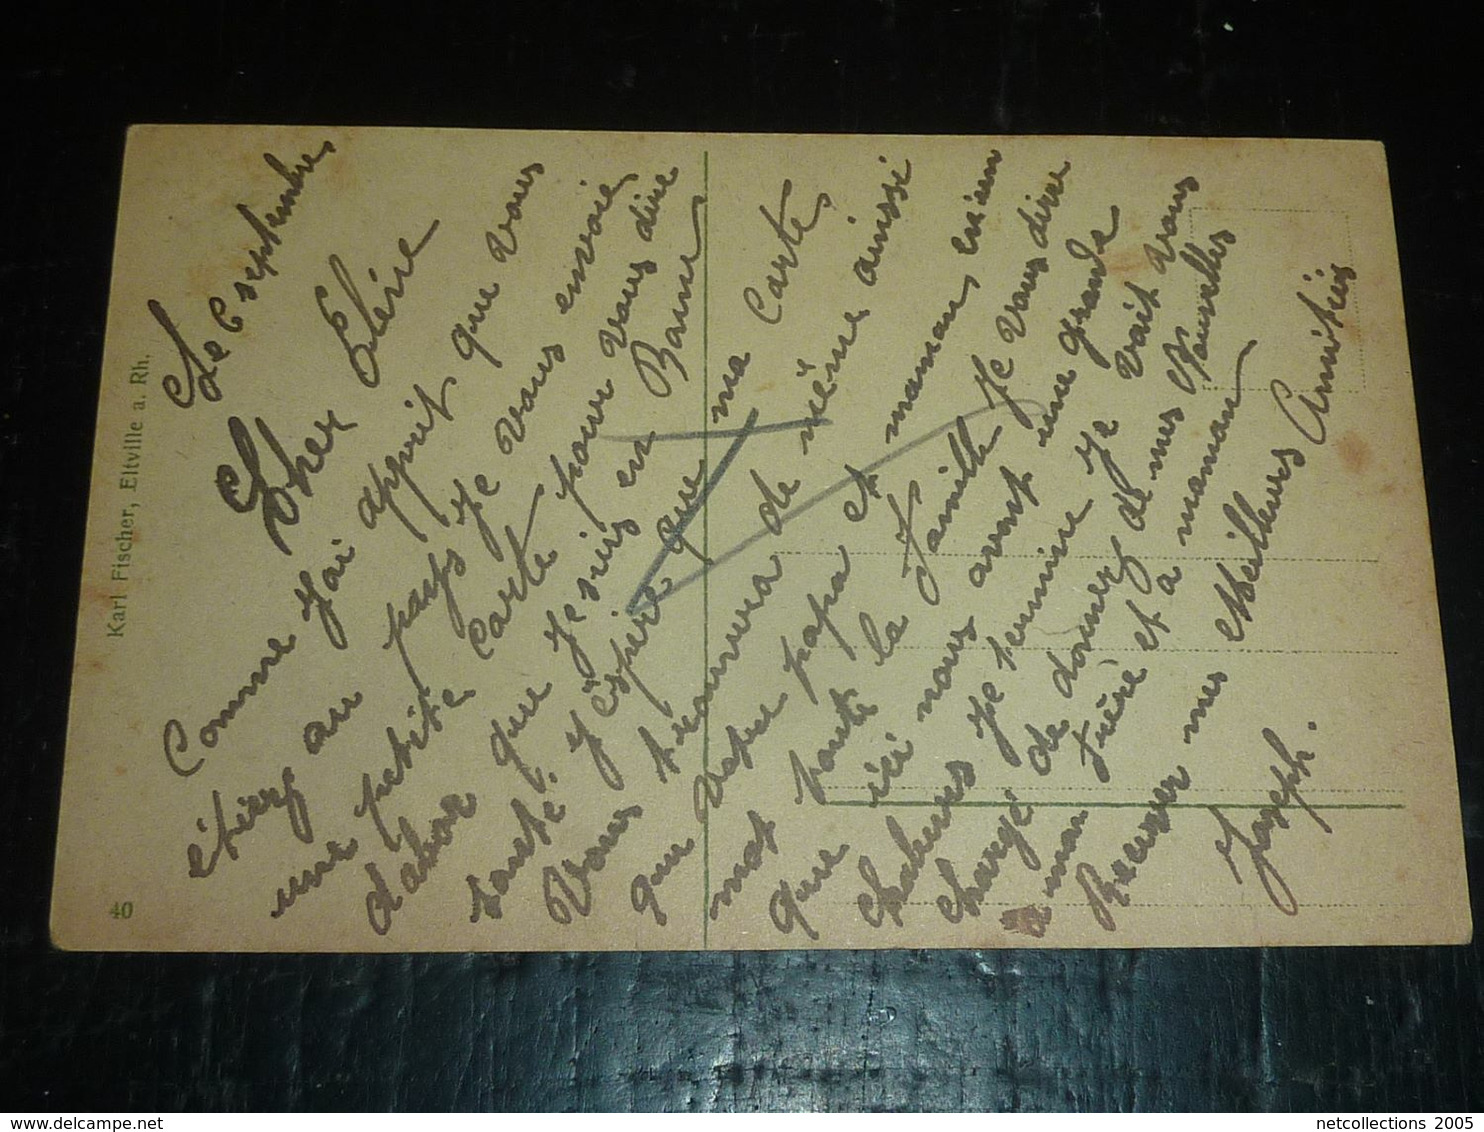 Le 6 septembre
Cher Elère
Comme j'ai apprit que vous
étiez au pays je vous envoie
une petite carte pour vous dire
d'abor que je suis en Bonne
santé j'éspère que ma Carte
Vous trouvera de même ainsi
que votre papa et maman, enien
mot toute la famille Je vous dire
que ici nous avont une grande
chaleurs je termine Je vait vous
chargé de donnez de mes Nouvelles
a mon frère et a maman
Recevez mes Meilleurs Amitiés
Joseph.
Karl Fischer, Eltville a. Rh.
40
netcollections 2005
www.delcampe.net